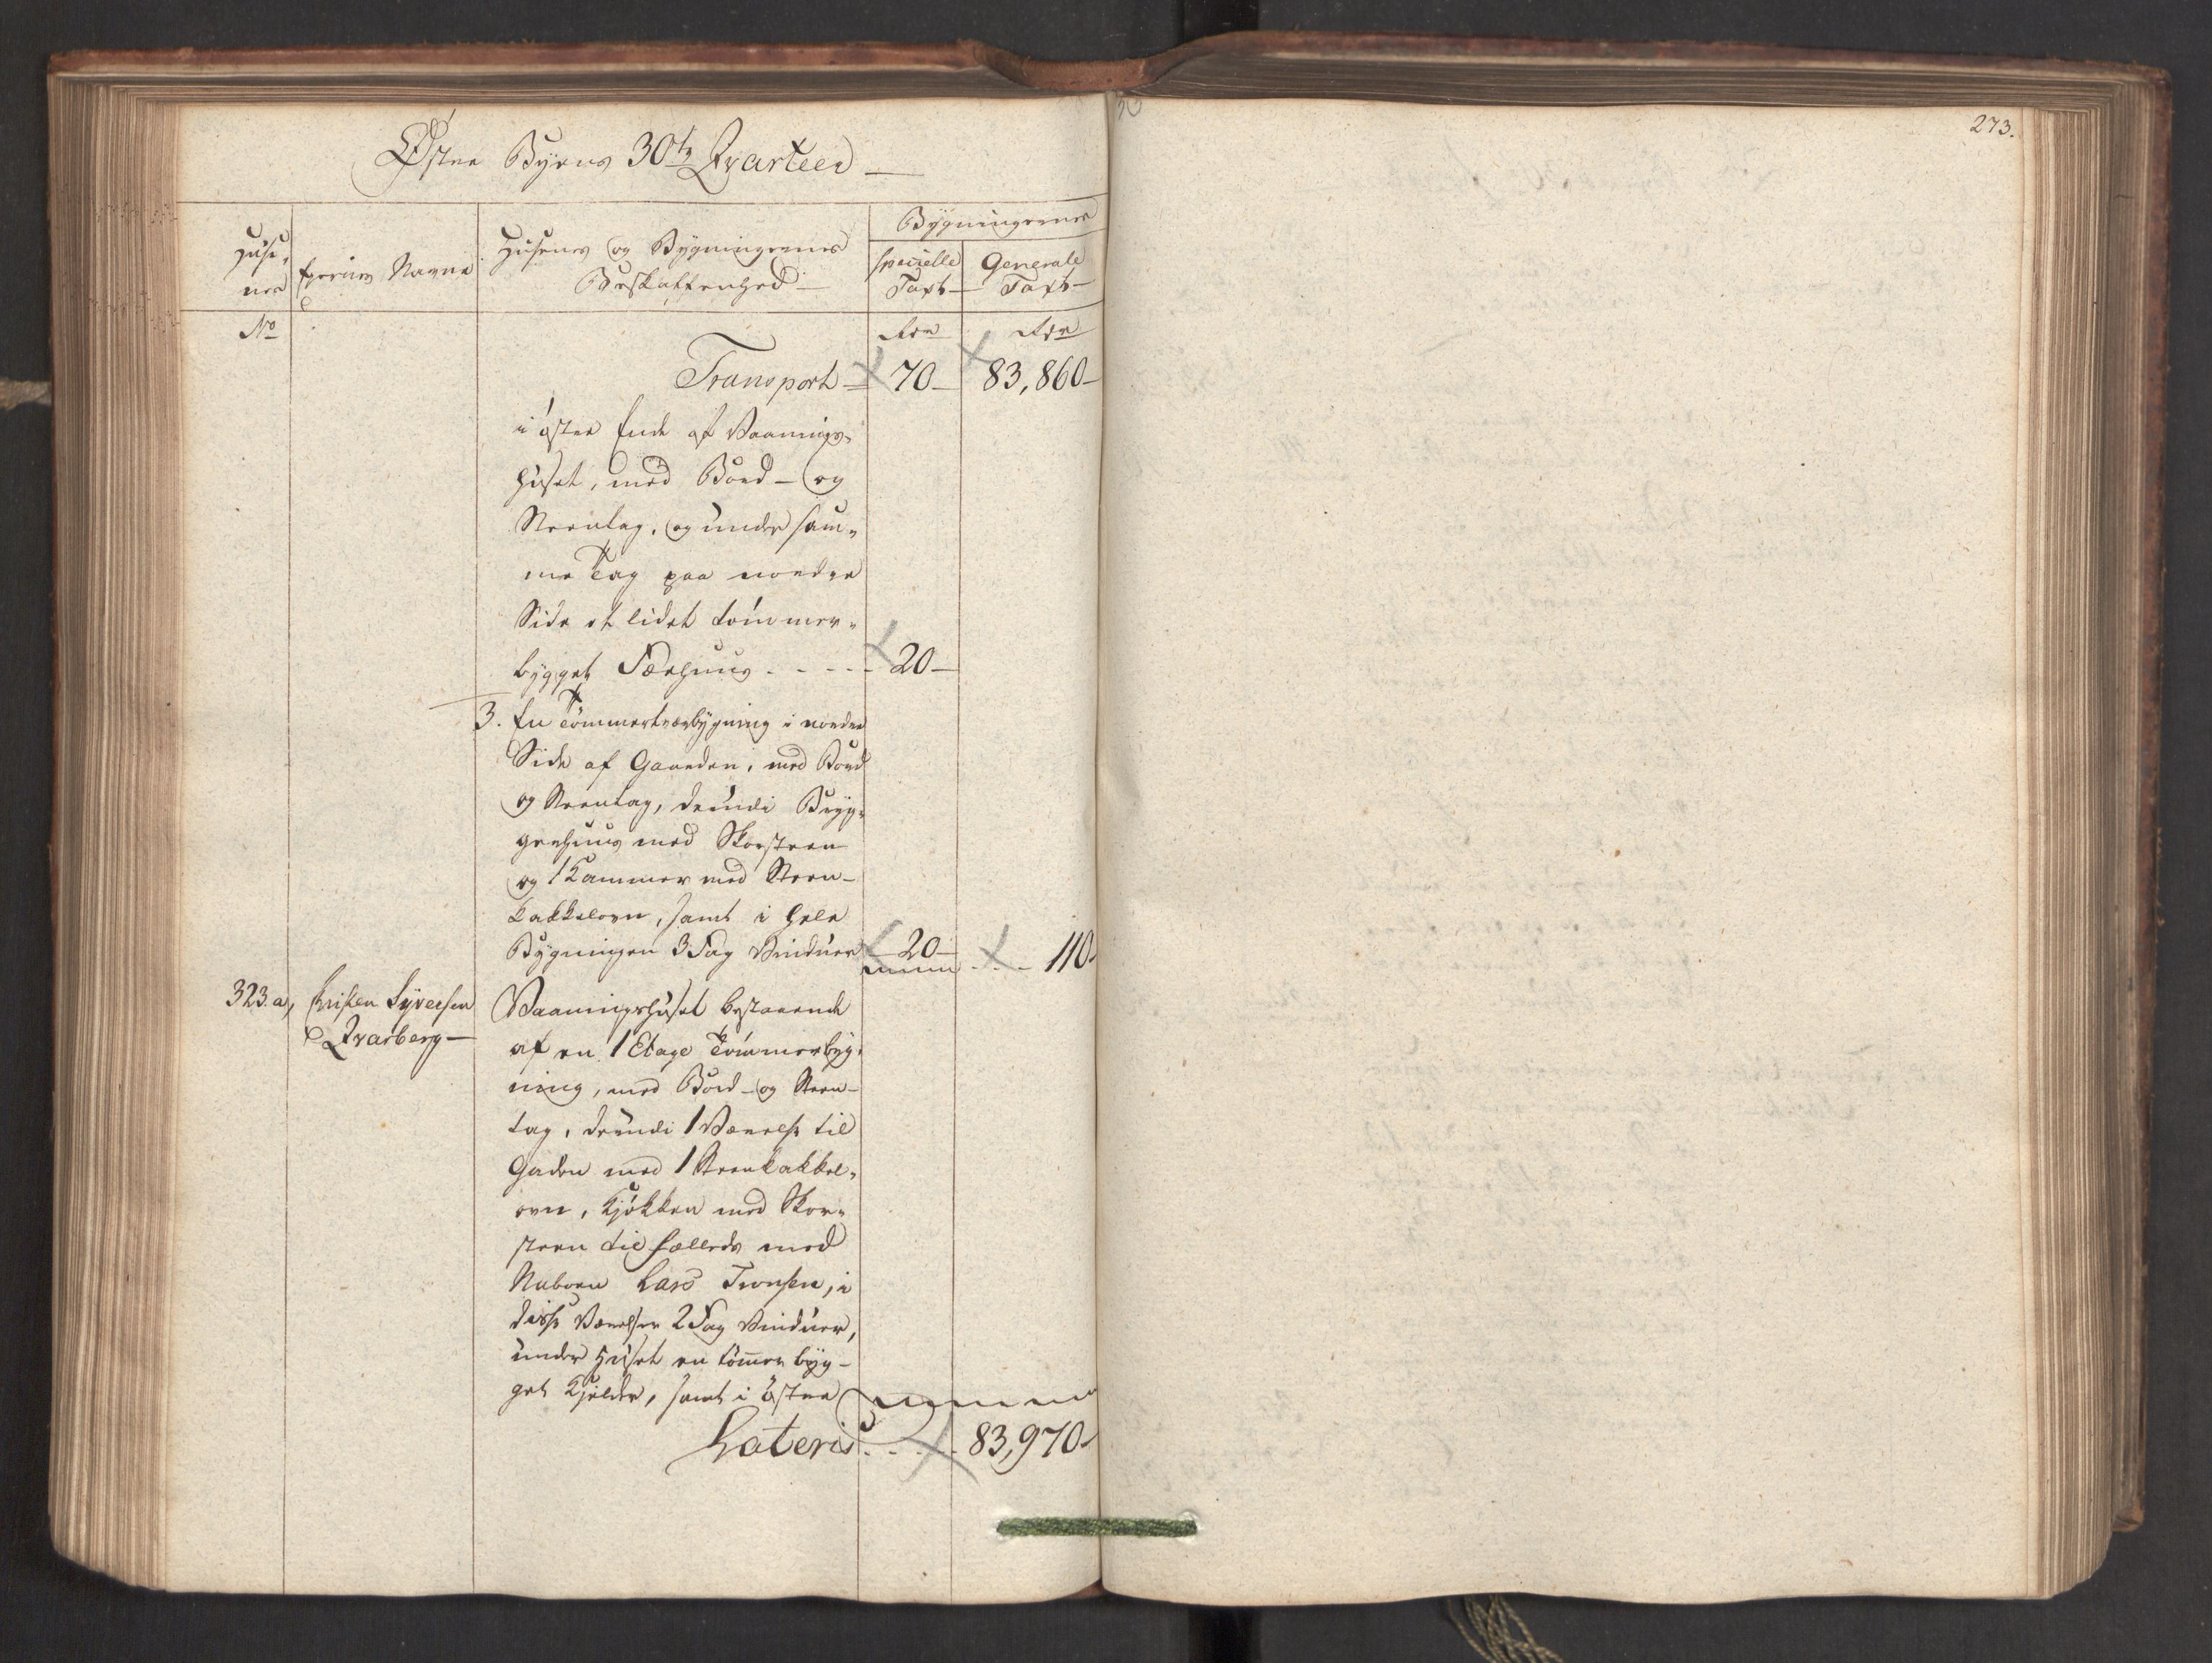 273.
Øster Byens 30te Qvarteer
Huse-
nes
Eyernes Navne
Husenes og Bygningernes
Beskaffenhed
Bygningernes
Specielle
Taxt
Generale
Taxt
No
Rdr
Rdr
Transport 70 83,860
i øster Ende af Vaanings-
huset, med Bord- og
Steentag, og under sam-
me Tag paa nordre
Side et lidet tømmer-
bygget Fæehuus - - - - 20
3. En Tømmertværbygning i nordre
Side af Gaarden, med Bord
og Steentag, derudi Bryg-
gerhuus med Skorsteen
og 1 Kammer med Steen-
kakkelovn, samt i hele
Bygningen 3 Fag Vinduer 20 - - 110
323.a, Christen Syversen
Qvarberg
Vaaningshuset bestaaende
af en 1 Etage Tømmerbyg-
ning, med Bord- og Steen-
tag, derudi 1 Værelse til
Gaden med 1 Steenkakkel-
ovn, Kjøkken med Skor-
steen til fælleds med
Naboen Lars Tronsen, i
disse Værelser 2 Fag Vinduer,
under Huset en tømmer byg-
get Kjelder, samt i øster
Lateris . . . . 83,970